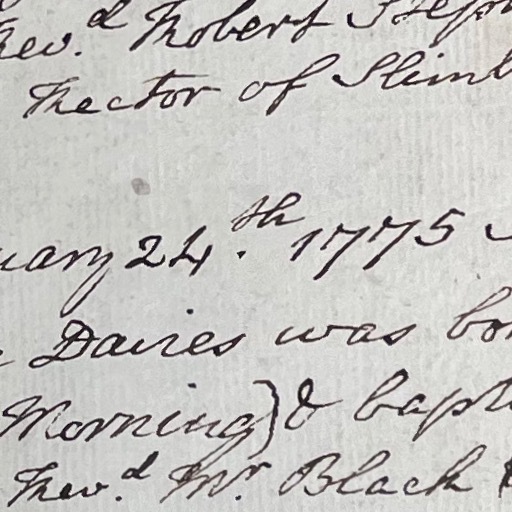 Rev.d Robert Steph
Rector of Slimb
uary 24.th 1775
Davies was bor
Morning) & bapt
Rev.d Mr. Black